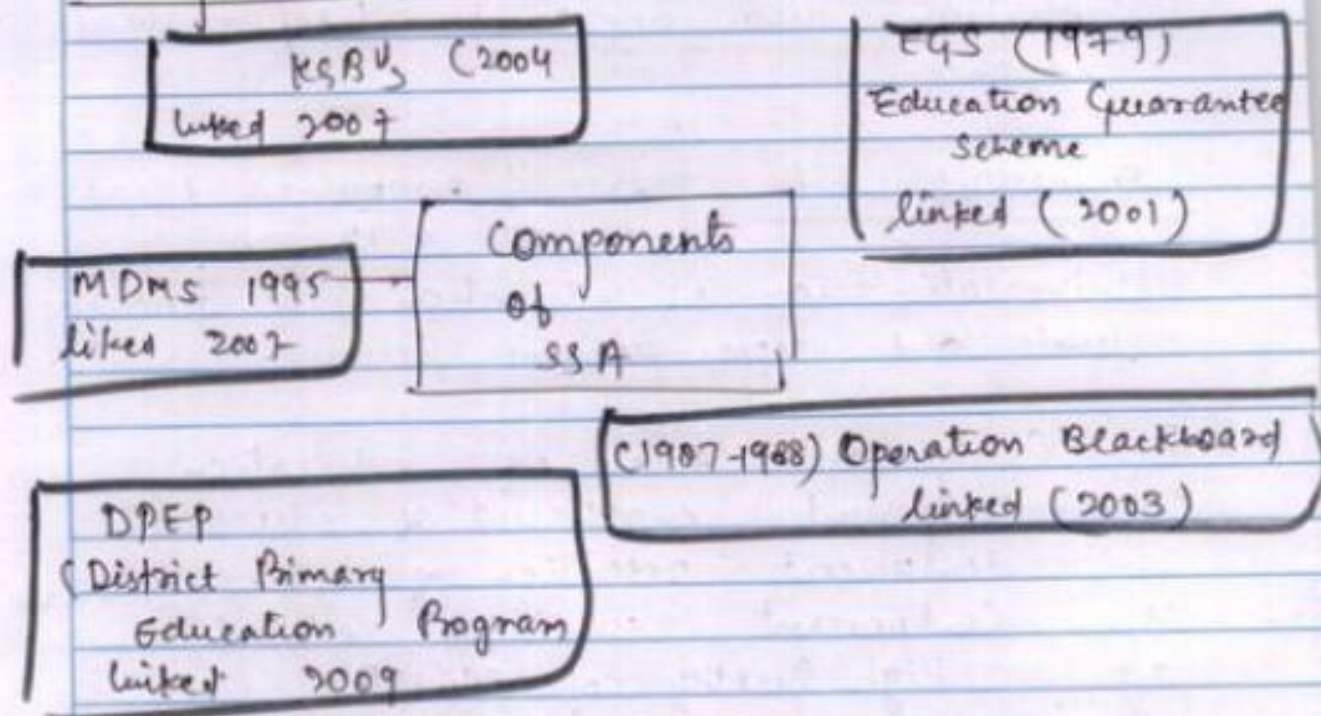 KGBVs (2004
linked 2007
EGS (1979)
Education Guarantee
Scheme
linked (2001)
Components
of
SSA
MDMS 1995
liked 2007
(1987-1988) Operation Blackboard
linked (2003)
DPEP
(District Primary
Education Program
linked 2009